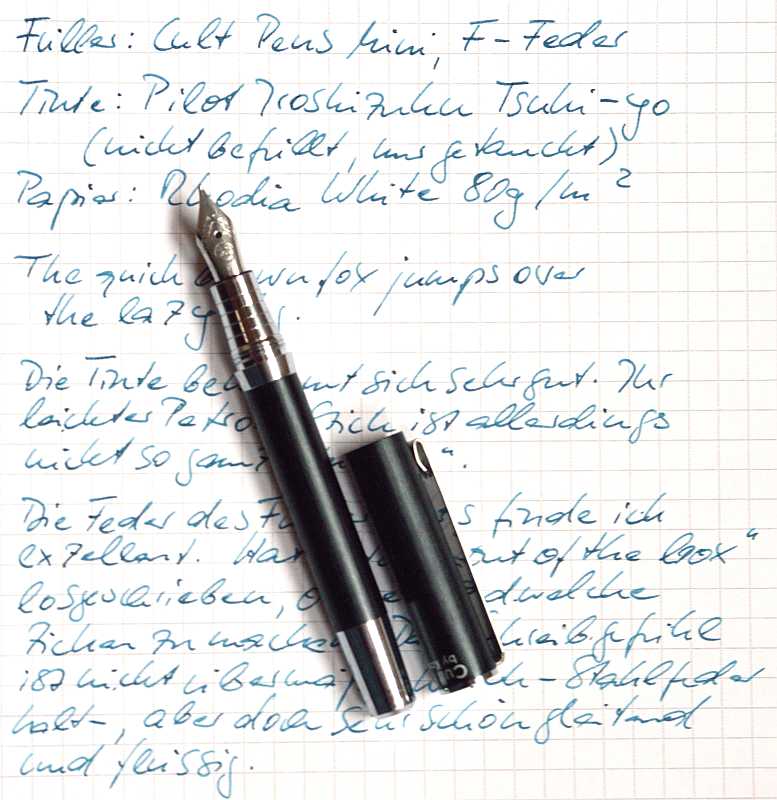 Füller: Cult Pens Mini, F-Feder
Tinte: Pilot Iroshizuku Tsuki-yo
(nicht befüllt, nur getaucht)
Papier: Rhodia White 80g/m²
The quick brown fox jumps over
the lazy
Die Tinte sich sehr gut. Ihr
leichter Petrol Stich ist allerdings
nicht so ganz
Die Feder des finde ich
exzellent. Hat out of the box“
losgeschrieben,
Zicken zu machen. Schreibgefühl
ist nicht - Stahlfeder
halt-, aber doch sehr schön gleitend
und flüssig.